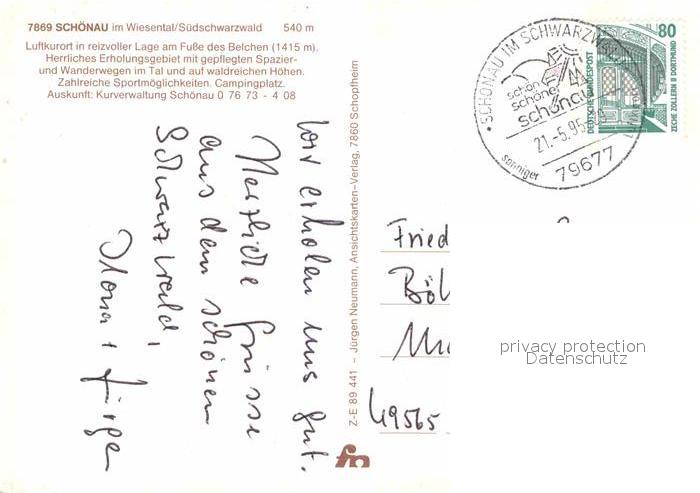 7869 SCHÖNAU im Wiesental/Südschwarzwald 540 m
Luftkurort in reizvoller Lage am Fuße des Belchen (1415 m).
Herrliches Erholungsgebiet mit gepflegten Spazier-
und Wanderwegen im Tal und auf waldreichen Höhen.
Zahlreiche Sportmöglichkeiten. Campingplatz.
Auskunft: Kurverwaltung Schönau 0 76 73 - 4 08
Wir erholen uns gut.
Herzliche Grüsse
aus dem schönen
Schwarzwald,
Ilona + Jürgen
Z-E 89 441 – Jürgen Neumann, Ansichtskarten-Verlag, 7860 Schopfheim
SCHÖNAU IM SCHWARZWALD
schön
schöner
schönau
21.-5.95
sonniger
79677
80
DEUTSCHE BUNDESPOST
ZECHE ZOLLERN II DORTMUND
Fried
Böl
49565
privacy protection
Datenschutz